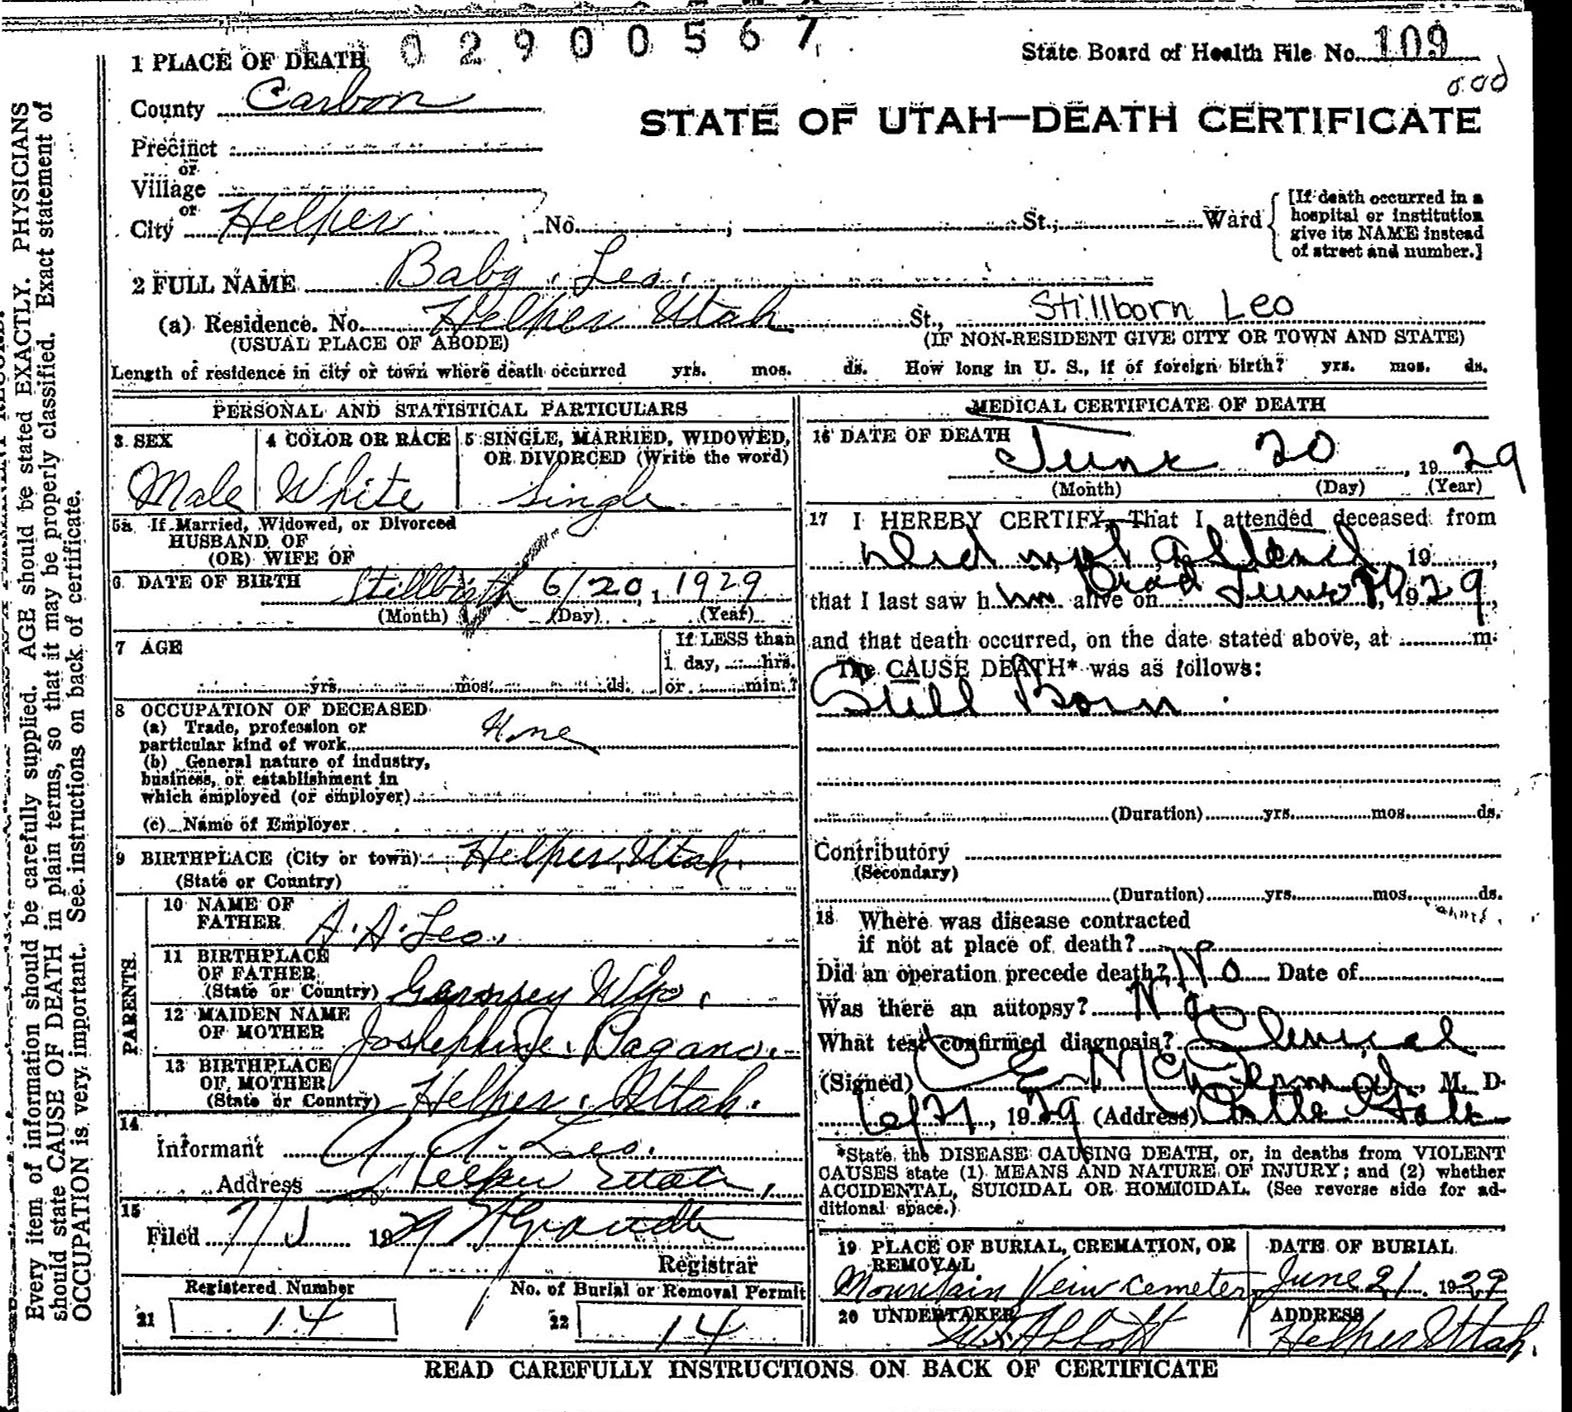 02900567
State Board of Health File No. 109
1 PLACE OF DEATH
County Carbon
STATE OF UTAH—DEATH CERTIFICATE
Precinct
or
Village
or
City Helper No. ; St.; Ward
[If death occurred in a
hospital or institution
give its NAME instead
of street and number.]
2 FULL NAME Baby Leo.
(a) Residence. No. Helper Utah St., Stillborn Leo
(USUAL PLACE OF ABODE) (IF NON-RESIDENT GIVE CITY OR TOWN AND STATE)
Length of residence in city or town where death occurred yrs. mos. ds. How long in U. S., if of foreign birth? yrs. mos. ds.
PERSONAL AND STATISTICAL PARTICULARS
3 SEX 4 COLOR OR RACE 5 SINGLE, MARRIED, WIDOWED,
OR DIVORCED (Write the word)
Male White Single
5a If Married, Widowed, or Divorced
HUSBAND OF
(OR) WIFE OF
6 DATE OF BIRTH Stillbirth 6/20, 1929
(Month) (Day) (Year)
7 AGE If LESS than
1 day, hrs.
yrs. mos. ds. or min.?
8 OCCUPATION OF DECEASED
(a) Trade, profession or
particular kind of work
(b) General nature of industry,
business, or establishment in
which employed (or employer)
(c) Name of Employer
9 BIRTHPLACE (City or town) Helper, Utah.
(State or Country)
PARENTS
10 NAME OF
FATHER A. A. Leo.
11 BIRTHPLACE
OF FATHER
(State or Country) Wyo.
12 MAIDEN NAME
OF MOTHER Josephine Pagano.
13 BIRTHPLACE
OF MOTHER
(State or Country) Helper, Utah.
14
Informant A. A. Leo.
Address Helper Utah.
15
Filed 1929
Registrar
Registered Number No. of Burial or Removal Permit
21 14 22 14
MEDICAL CERTIFICATE OF DEATH
16 DATE OF DEATH June 20, 1929
(Month) (Day) (Year)
17 I HEREBY CERTIFY, That I attended deceased from
Did not attend, 19
that I last saw him alive on Dead June 20, 1929,
and that death occurred, on the date stated above, at m.
The CAUSE DEATH* was as follows:
Still Born
(Duration) yrs. mos. ds.
Contributory
(Secondary)
(Duration) yrs. mos. ds.
18 Where was disease contracted
if not at place of death?
Did an operation precede death? No Date of
Was there an autopsy? No
What test confirmed diagnosis? Clinical
(Signed) C E McDermid, M. D.
6/21, 1929 (Address) Castle Gate
*State the DISEASE CAUSING DEATH, or, in deaths from VIOLENT
CAUSES state (1) MEANS AND NATURE OF INJURY; and (2) whether
ACCIDENTAL, SUICIDAL OR HOMICIDAL. (See reverse side for ad-
ditional space.)
19 PLACE OF BURIAL, CREMATION, OR
REMOVAL
DATE OF BURIAL
Mountain View cemetery June 21 1929
20 UNDERTAKER ADDRESS
Helper Utah.
READ CAREFULLY INSTRUCTIONS ON BACK OF CERTIFICATE
Every item of information should be carefully supplied. AGE should be stated EXACTLY. PHYSICIANS
should state CAUSE OF DEATH in plain terms, so that it may be properly classified. Exact statement of
OCCUPATION is very important. See instructions on back of certificate.